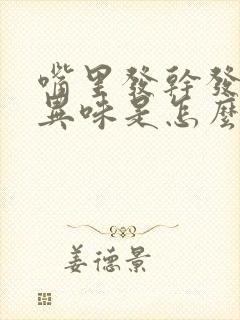 嘴里發幹發
異味是怎麼
姜德景